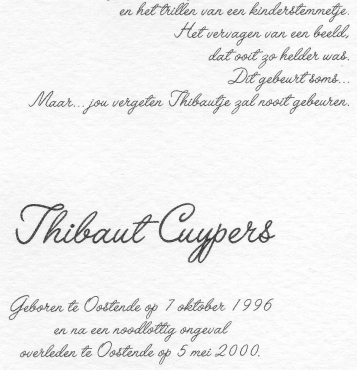 en het trillen van een kinderstemmetje.
Het vervagen van een beeld,
dat ooit zo helder was.
Dit gebeurt soms...
Maar... jou vergeten Thibautje zal nooit gebeuren.
Thibaut Cuypers
Geboren te Oostende op 7 oktober 1996
en na een noodlottig ongeval
overleden te Oostende op 5 mei 2000.